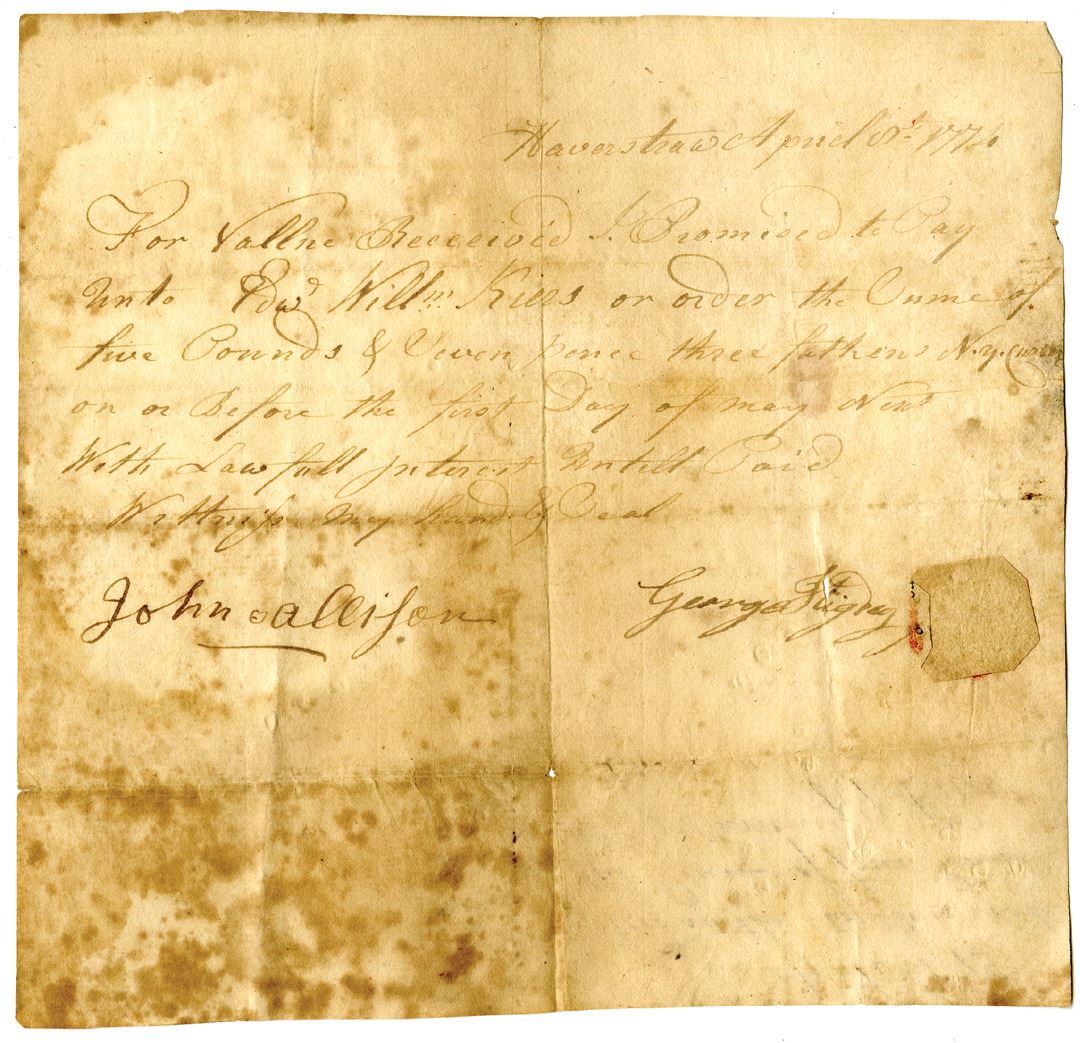 Haverstraw April 177
For Vallue Receeived I Promised to Pay
Unto Edwd Willm Kiers or order the Sume of
five Pounds & Seven pence three fathens N.y. Curen
on or Before the first Day of may Next
With Lawfull Jnterest Untill Paid
Wittness my hand & Seal
John allison George